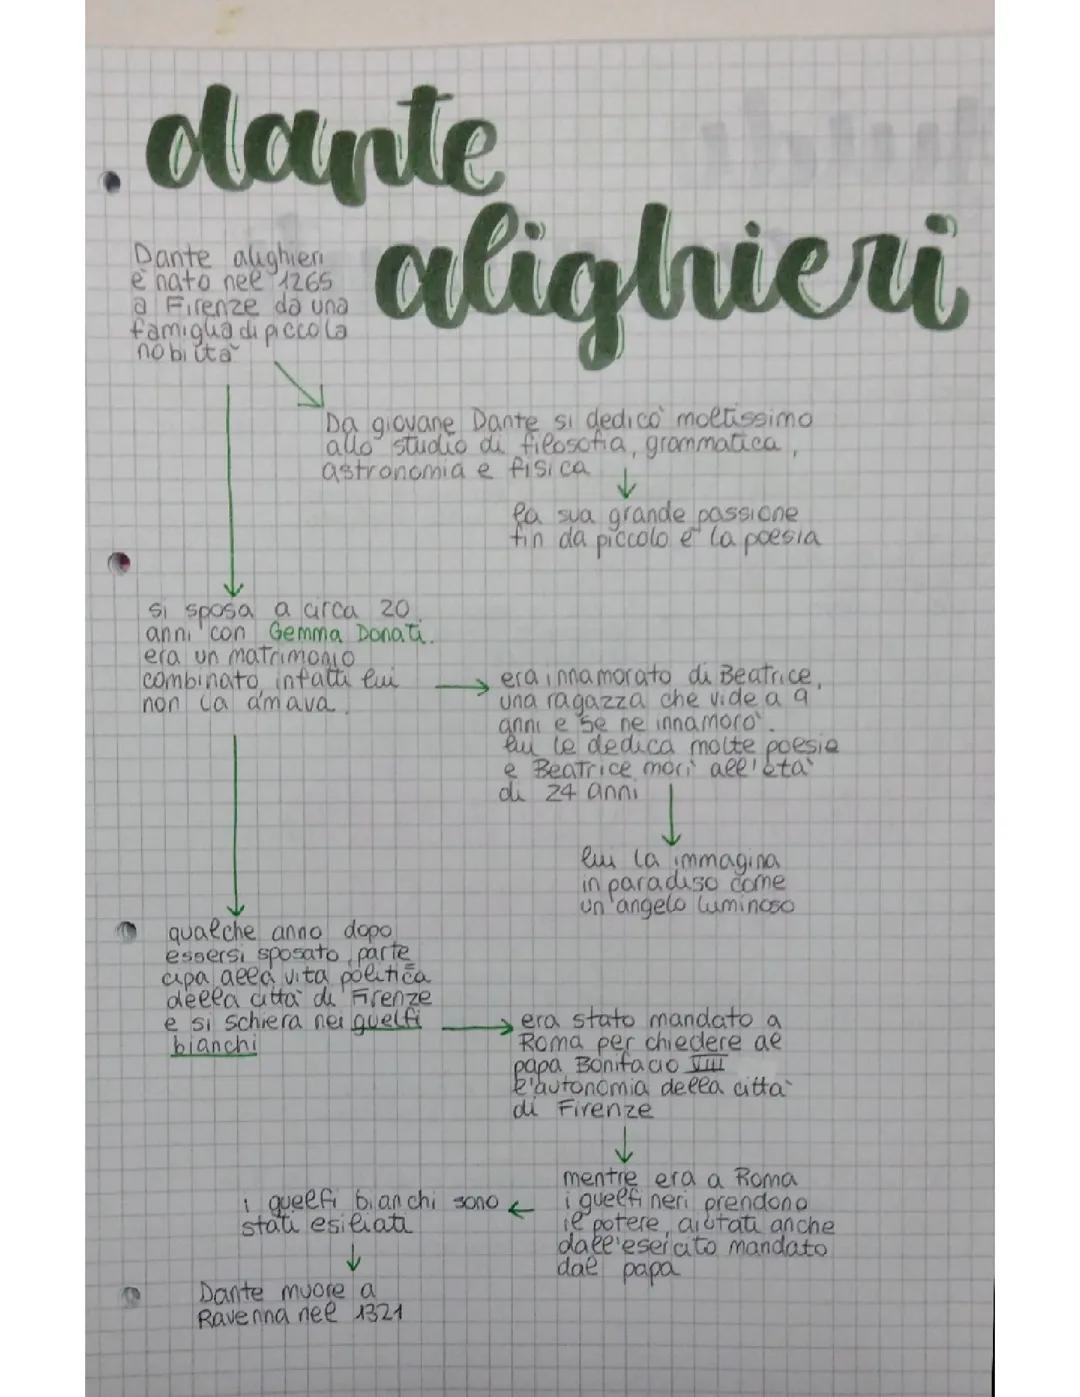 dante
alighieri
Dante alighieri
è nato nel 1265
a Firenze da una
famiglia di piccola
nobiltà
Da giovane Dante si dedicò moltissimo
allo studio di filosofia, grammatica,
astronomia e fisica
la sua grande passione
fin da piccolo è la poesia
si sposa a circa 20
anni con Gemma Donati.
era un matrimonio
combinato, infatti lui
non la amava.
era innamorato di Beatrice,
una ragazza che vide a 9
anni e se ne innamorò.
lui le dedica molte poesie
e Beatrice morì all'età
di 24 anni
lui la immagina
in paradiso come
un angelo luminoso
qualche anno dopo
essersi sposato, parte
cipa alla vita politica
della città di Firenze
e si schiera nei guelfi
bianchi
era stato mandato a
Roma per chiedere al
papa Bonifacio VIII
l'autonomia della città
di Firenze
mentre era a Roma
i guelfi neri prendono
il potere, aiutati anche
dall'esercito mandato
dal papa
i guelfi bianchi sono
stati esiliati
Dante muore a
Ravenna nel 1321